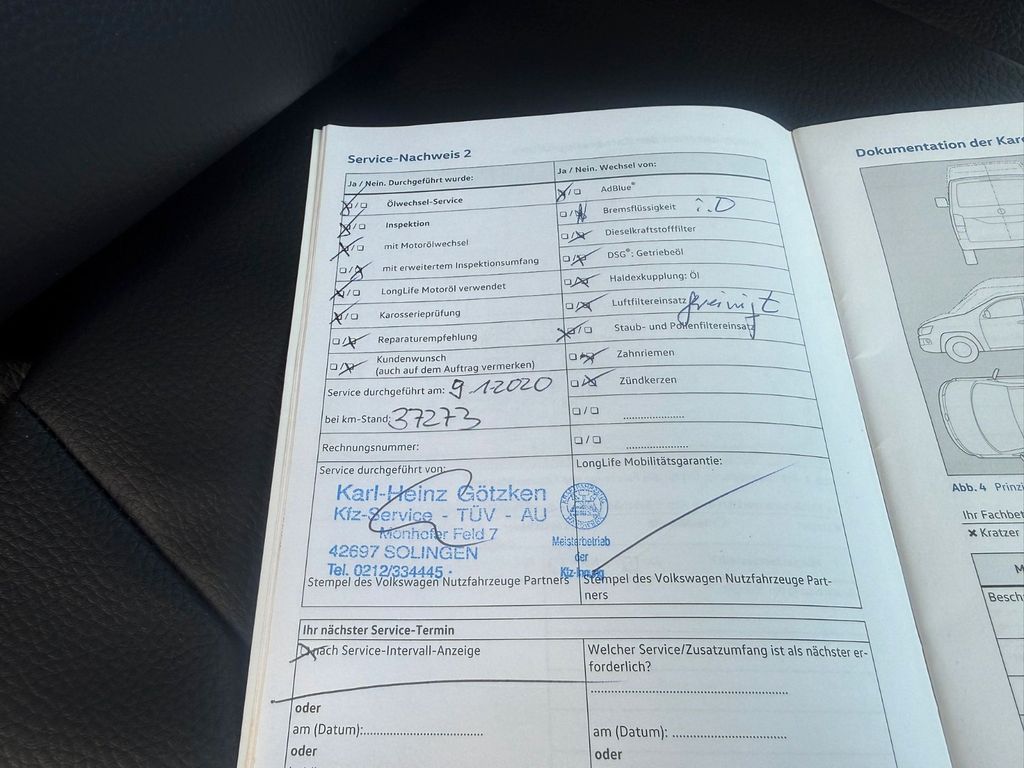 Service-Nachweis 2
Ja / Nein. Durchgeführt wurde:
Ölwechsel-Service
Inspektion
mit Motorölwechsel
mit erweitertem Inspektionsumfang
LongLife Motoröl verwendet
Karosserieprüfung
Reparaturempfehlung
Kundenwunsch
(auch auf dem Auftrag vermerken)
Service durchgeführt am: 9.1.2020
bei km-Stand: 37273
Rechnungsnummer:
Service durchgeführt von:
Karl-Heinz Götzken
Kfz-Service - TÜV - AU
Monhofer Feld 7
42697 SOLINGEN
Tel. 0212/334445
Stempel des Volkswagen Nutzfahrzeuge Partners
Ja / Nein. Wechsel von:
AdBlue®
Bremsflüssigkeit i.O
Dieselkraftstofffilter
DSG®: Getriebeöl
Haldexkupplung: Öl
Luftfiltereinsatz gereinigt
Staub- und Pollenfiltereinsatz
Zahnriemen
Zündkerzen
LongLife Mobilitätsgarantie:
Meisterbetrieb
der
Kfz-Innung
Stempel des Volkswagen Nutzfahrzeuge Part-
ners
Ihr nächster Service-Termin
nach Service-Intervall-Anzeige
oder
am (Datum):
oder
Welcher Service/Zusatzumfang ist als nächster er-
forderlich?
am (Datum):
oder
Dokumentation der Karo
Abb. 4 Prinzi
Ihr Fachbet
Kratzer
M
Besch